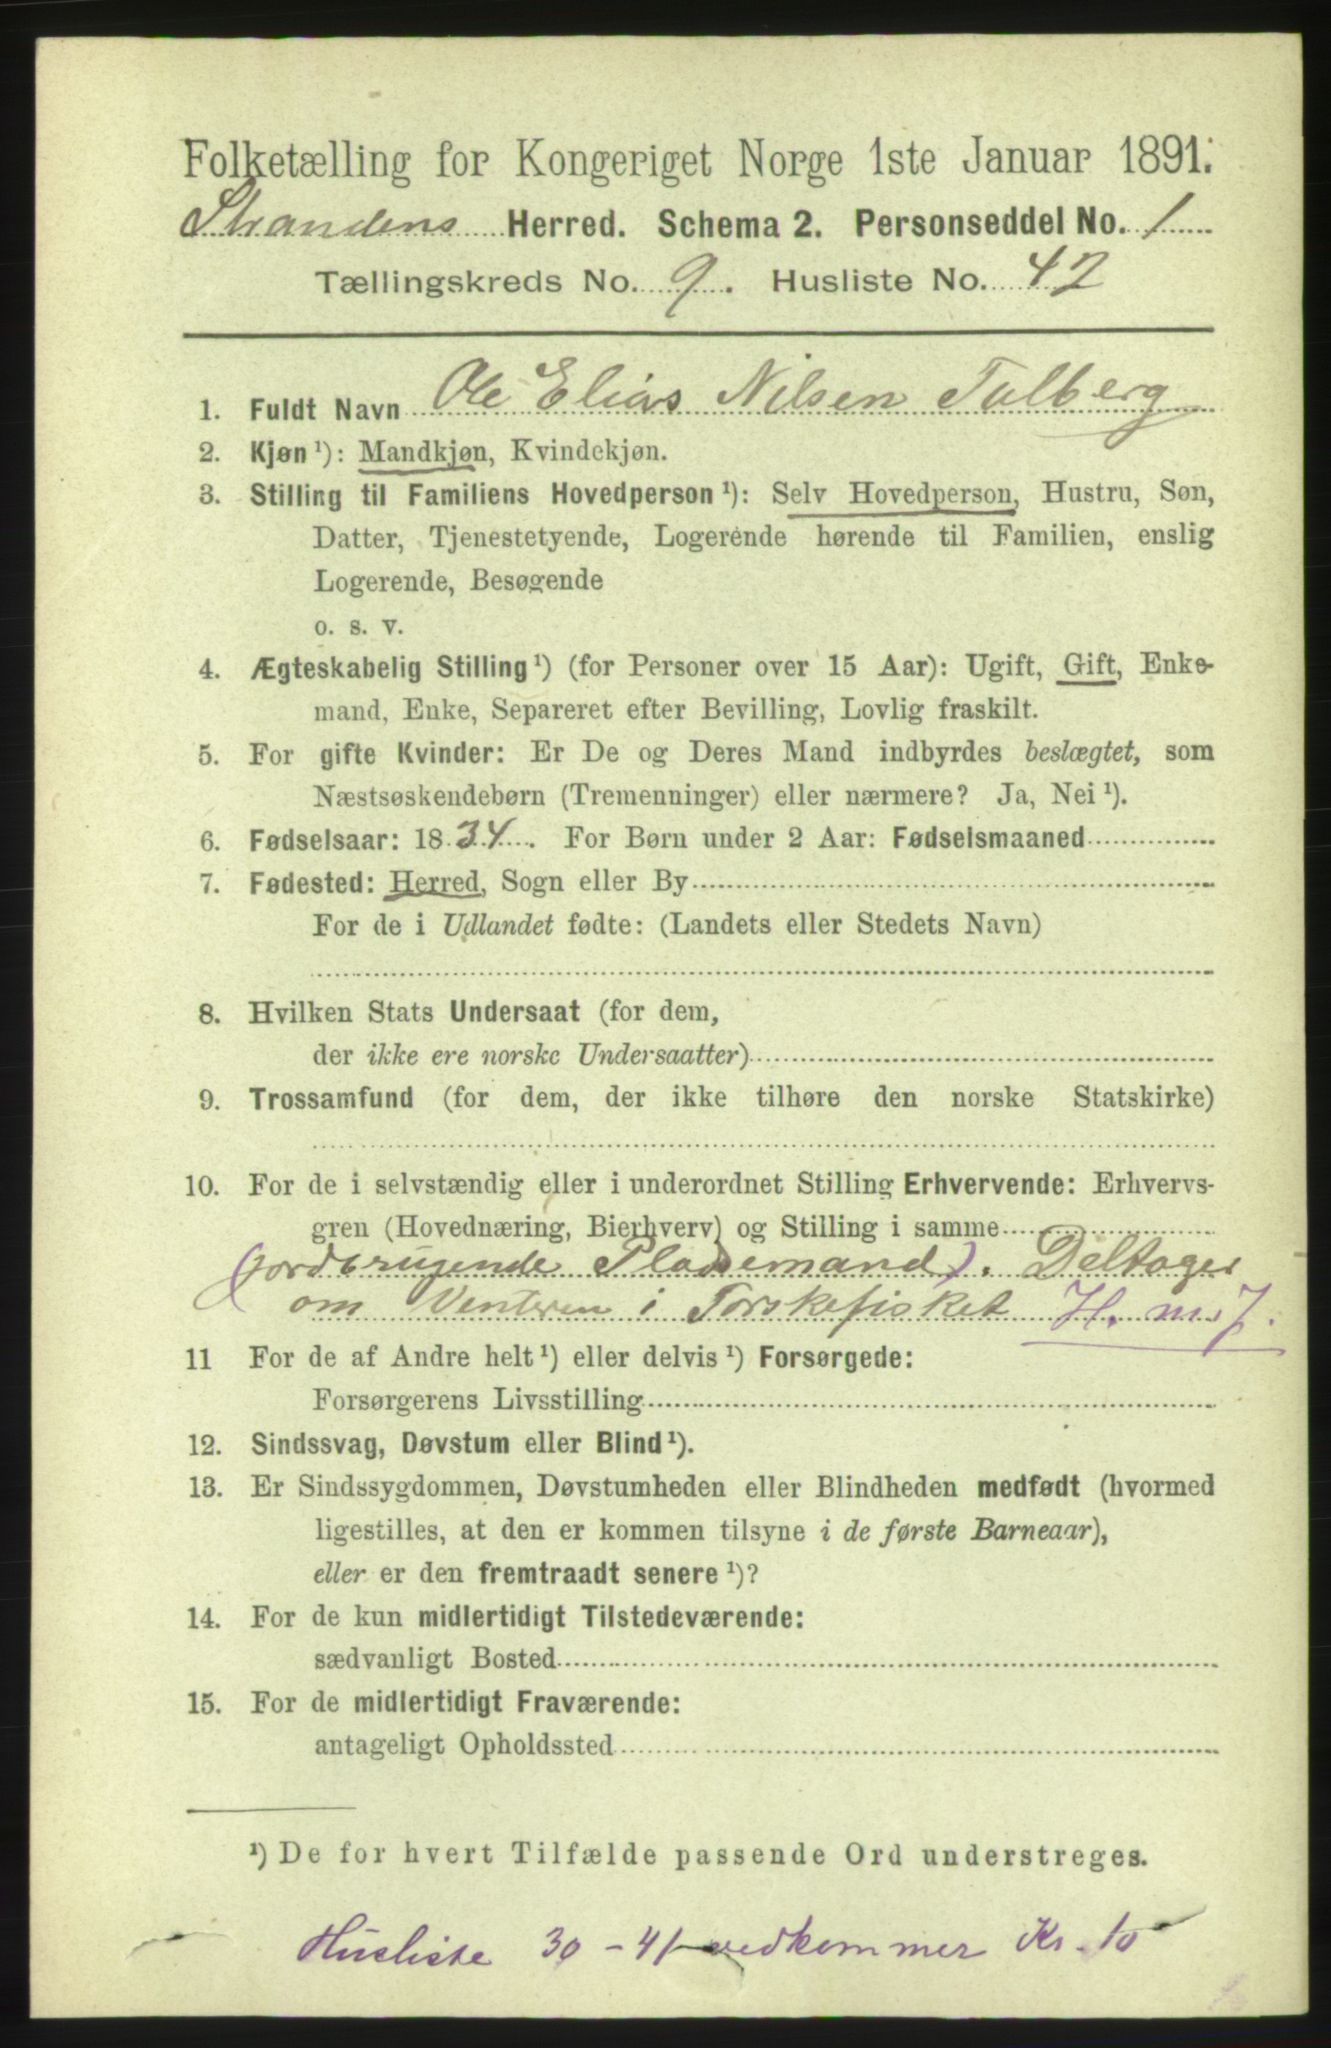 Folketælling for Kongeriget Norge 1ste Januar 1891.
Strandens Herred. Schema 2. Personseddel No. 1
Tællingskreds No. 9. Husliste No. 42
1. Fuldt Navn Ole Elias Nilsen Tulberg
2. Kjøn ¹): Mandkjøn, Kvindekjøn.
3. Stilling til Familiens Hovedperson ¹): Selv Hovedperson, Hustru, Søn,
Datter, Tjenestetyende, Logerende hørende til Familien, enslig
Logerende, Besøgende
o. s. v.
4. Ægteskabelig Stilling ¹) (for Personer over 15 Aar): Ugift, Gift, Enke-
mand, Enke, Separeret efter Bevilling, Lovlig fraskilt.
5. For gifte Kvinder: Er De og Deres Mand indbyrdes beslægtet, som
Næstsøskendebørn (Tremenninger) eller nærmere? Ja, Nei ¹).
6. Fødselsaar: 1834. For Børn under 2 Aar: Fødselsmaaned
7. Fødested: Herred, Sogn eller By
For de i Udlandet fødte: (Landets eller Stedets Navn)
8. Hvilken Stats Undersaat (for dem,
der ikke ere norske Undersaatter)
9. Trossamfund (for dem, der ikke tilhøre den norske Statskirke)
10. For de i selvstændig eller i underordnet Stilling Erhvervende: Erhvervs-
gren (Hovednæring, Bierhverv) og Stilling i samme
(jordbrugende Pladsemand). Deltager
om Venteren i Torskefisket H. m. J.
11 For de af Andre helt ¹) eller delvis ¹) Forsørgede:
Forsørgerens Livsstilling
12. Sindssvag, Døvstum eller Blind ¹).
13. Er Sindssygdommen, Døvstumheden eller Blindheden medfødt (hvormed
ligestilles, at den er kommen tilsyne i de første Barneaar),
eller er den fremtraadt senere ¹)?
14. For de kun midlertidigt Tilstedeværende:
sædvanligt Bosted
15. For de midlertidigt Fraværende:
antageligt Opholdssted
¹) De for hvert Tilfælde passende Ord understreges.
Husliste 30 - 41 vedkommer Kr. 10